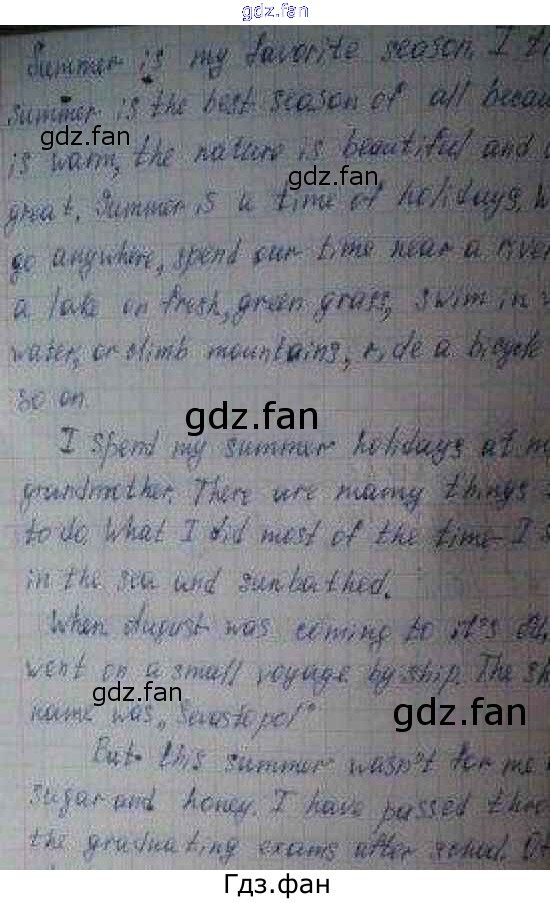 gdz.fan
Summer is my favorite season. I
summer is the best season of all
is warm, the nature is beautiful and
great. Summer is a time of holidays.
go anywhere, spend our time near a river
a lake on fresh, green grass, swim in
water, or climb mountains, ride a bicycle
so on.
I spend my summer holidays at
grandmother. There are many things
to do. What I did most of the time - I
in the sea and sunbathed.
When August was coming to it's
went on a small voyage by ship. The
name was „Sevastopol"
But this summer wasn't for me
sugar and honey. I have passed
the graduating exams after school.
gdz.fan
gdz.fan
gdz.fan
gdz.fan
gdz.fan
gdz.fan
gdz.fan
Гдз.фан